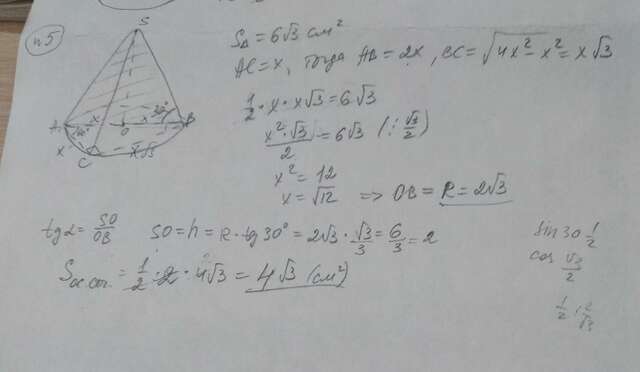 n5
S
A
B
C
O
x
x
x
x√3
30°
S△ = 6√3 см²
AC = x, тогда AB = 2x, BC = √4x² - x² = x√3
1/2 · x · x√3 = 6√3
x² · √3 / 2 = 6√3 (: √3/2)
x² = 12
x = √12 => OB = R = 2√3
tg α = SO/OB SO = h = R · tg 30° = 2√3 · √3/3 = 6/3 = 2
Sос.сеч. = 1/2 · 2 · 4√3 = 4√3 (см²)
sin 30 1/2
cos √3/2
1/2 : 2/√3